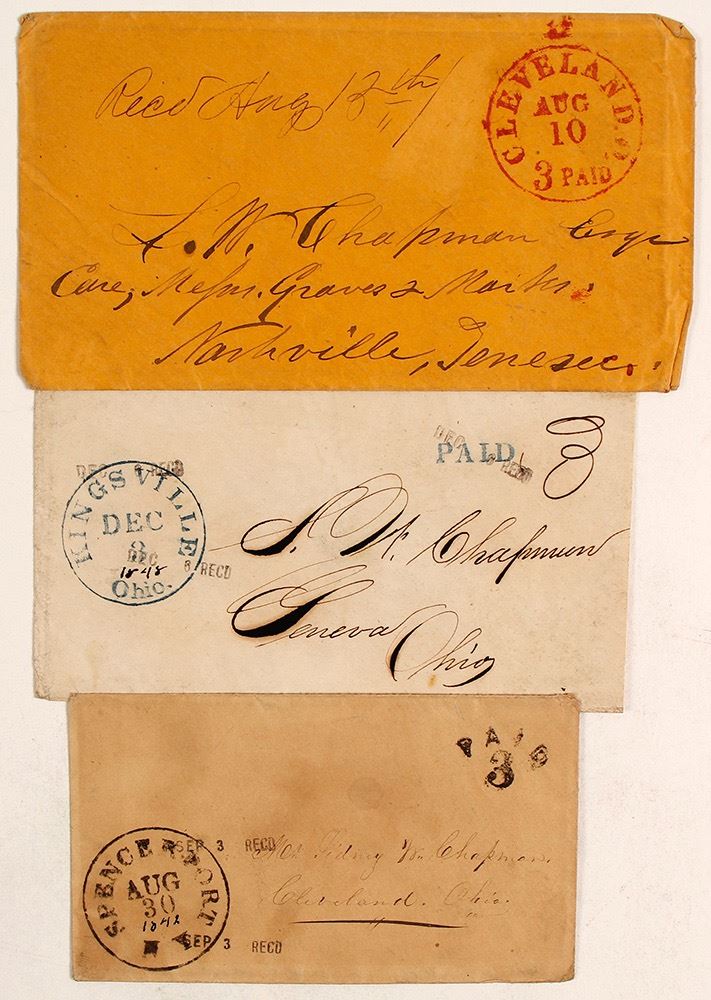 Recd Aug 13th
CLEVELAND. O.
AUG
10
3 PAID
S. W. Chapman Esqr
Care, Messrs. Graves & Marks.
Nashville, Tenesee.
DEC 6 RECD
PAID
3
DEC 6 RECD
KINGSVILLE
DEC
1848
DEC 6 RECD
Ohio.
S. W. Chapman
Geneva
Ohio
PAID
3
SPENCERPORT
AUG
30
1842
N Y
SEP 3 RECD
SEP 3 RECD
Mr. Sidney W. Chapman.
Cleveland. Ohio.